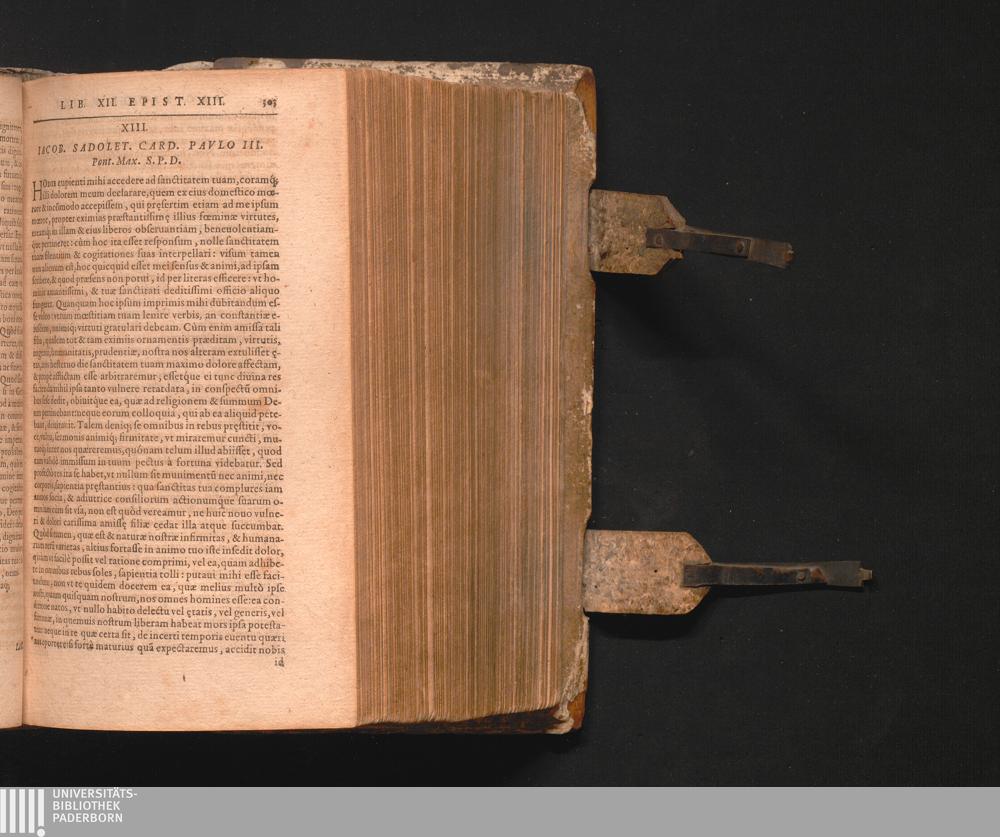 LIB. XII. EPIST. XIII. 303
XIII.
IACOB. SADOLET. CARD. PAVLO III.
Pont. Max. S. P. D.
cupienti mihi accedere ad sanctitatem tuam, coramq́;
illi dolorem meum declarare, quem ex eius domestico mœ-
rore & incōmodo accepissem, qui pręsertim etiam ad me ipsum
propter eximias præstantissimę illius fœminæ virtutes,
in illam & eius liberos obseruantiam, beneuolentiam-
que pertineret: cùm hoc ita esset responsum, nolle sanctitatem
tuam silentium & cogitationes suas interpellari: visum tamen
non alienum est, hoc quicquid esset mei sensus & animi, ad ipsam
scribere, & quod præsens non potui, id per literas efficere: vt ho-
minis amantissimi, & tuæ sanctitati deditissimi officio aliquo
fungerer. Quanquam hoc ipsum imprimis mihi dubitandum es-
se video: vtrum mœstitiam tuam lenire verbis, an constantiæ e-
animiq́; virtuti gratulari debeam. Cùm enim amissa tali
filia, qualem tot & tam eximiis ornamentis præditam, virtutis,
ingenii, humanitatis, prudentiæ, nostra nos alteram extulisset ę-
tas, hesterno die sanctitatem tuam maximo dolore affectam,
& prope afflictam esse arbitraremur, essetq́ue ei tunc diuina res
nihil ipsa tanto vulnere retardata, in conspectū omni-
bus sese dedit, obiuitque ea, quæ ad religionem & summum De-
um pertinebant: neque eorum colloquia, qui ab ea aliquid pete-
bant, deuitauit. Talem deniq; se omnibus in rebus pręstitit, vo-
ce, vultu, sermonis animiq́; firmitate, vt miraremur cuncti, mu-
inter nos quæreremus, quónam telum illud abiisset, quod
tam validè immissum in tuum pectus à fortuna videbatur. Sed
profectò res ita se habet, vt nullum sit munimentū nec animi, nec
corporis, sapientia pręstantius: qua sanctitas tua complures iam
annos socia, & adiutrice consiliorum actionumque suarum o-
mnium cùm sit vsa, non est quòd vereamur, ne huic nouo vulne-
ri & dolori carissima amissę filiæ cedat illa atque succumbat.
Quòd si tamen, quæ est & naturæ nostræ infirmitas, & humana-
rum rerū varietas, altius fortasse in animo tuo iste insedit dolor,
quàm vt facilè possit vel ratione comprimi, vel ea, quam adhibe-
re in omnibus rebus soles, sapientia tolli: putaui mihi esse faci-
undum, non vt te quidem docerem ea, quæ melius multò ipse
nosti, quàm quisquam nostrum, nos omnes homines esse: ea con-
ditione natos, vt nullo habito delectu vel ętatis, vel generis, vel
fortunæ, in quemuis nostrum liberam habeat mors ipsa potesta-
tem: neque in re quæ certa sit, de incerti temporis euentu quæri
oportere: si fortè maturius quā expectaremus, accidit nobis
id
UNIVERSITÄTS-
BIBLIOTHEK
PADERBORN